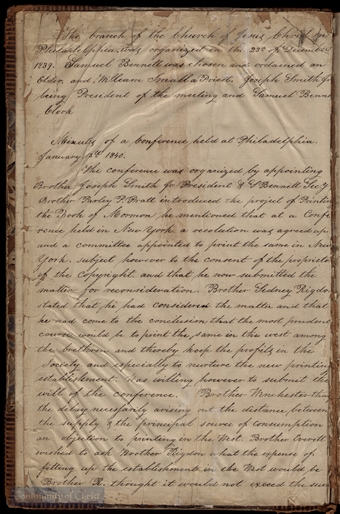 The branch of the Church of Jesus Christ in
Philadelphia, was organized on the 23rd of December
1839. Samuel Bennett was chosen and ordained an
Elder, and, William Small a Priest, Joseph Smith Jr
being President of the meeting and Samuel Bennett
Clerk
Minutes of a Conference held at Philadelphia
January 1840.
The conference was organized by appointing
Brother Joseph Smith Jr President & S Bennett Secy
Brother Parley P. Pratt introduced the project of Printing
the Book of Mormon, he mentioned that at a Confe
rence held in New York a resolution was agreed up
and a committee appointed to print the same in New
York, subject however to the consent of the proprietor
of the Copyright, and that he now submitted the
matter for reconsideration. Brother Sidney Rigdon
stated that he had considered the matter and that
he had come to the conclusion that the most prudent
course would be to print the same in the west among
the brethren and thereby keep the profits in the
Society and especially to nurture the new printing
establishment. Was willing however to submit the
will of the conference. Brother Winchester thought
the delay necessarily arising out the distance between
the supply & the principal source of consumption
an objection to printing in the West. Brother
wished to ask Brother Rigdon what the expense of
fitting up the establishments in the West would be
Brother R. thought it would not exceed the sum
Community of Christ